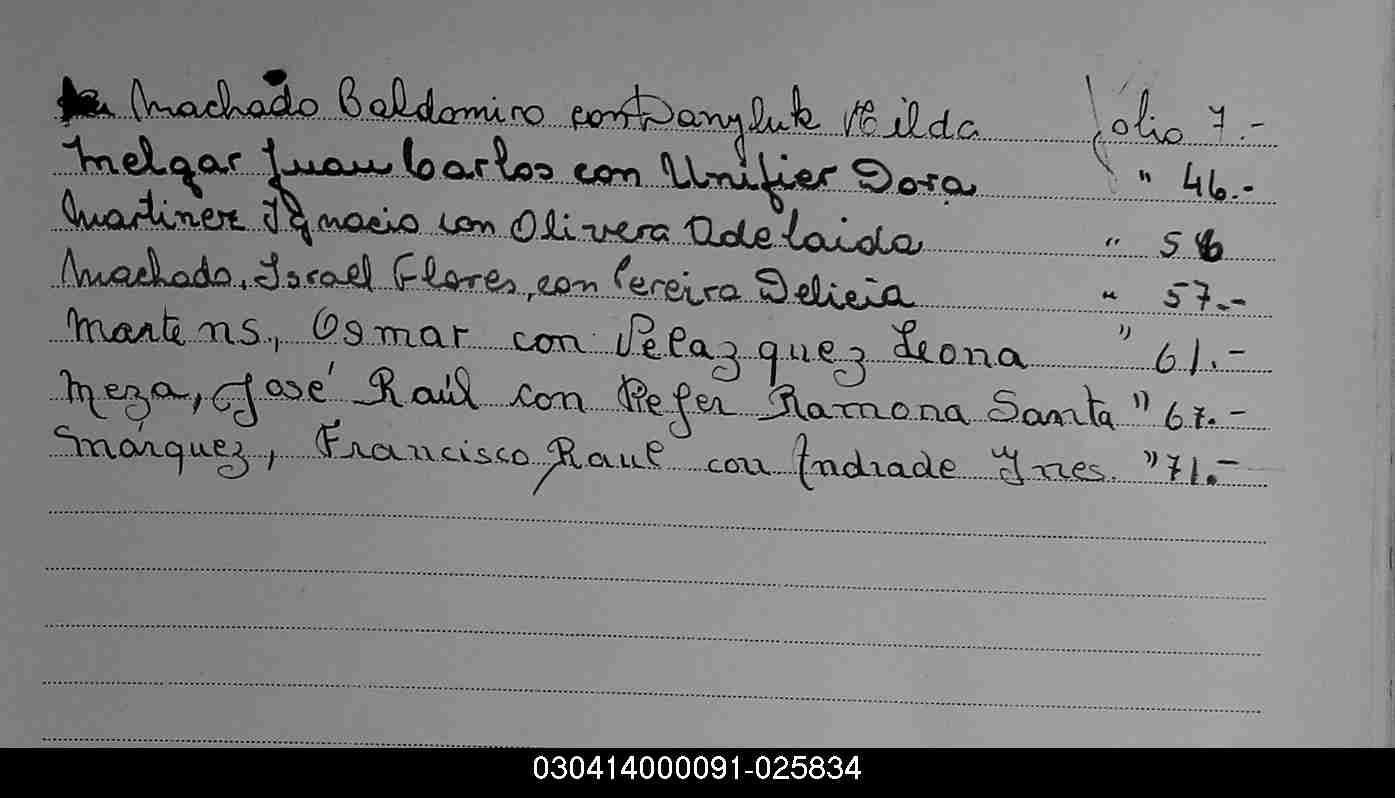 Machado Baldomiro con Danyluk Hilda folio 7.-
Melgar Juan Carlos con Unifier Dora " 46.-
Martinez Ygnacio con Olivera Adelaida " 56
Machado, Israel Flores, con Pereira Delicia " 57.-
Martens, Osmar con Velazquez Leona " 61.-
Meza, José Raúl con Refer Ramona Santa " 67.-
Márquez, Francisco Raul con Andrade Ynes. " 71.-
030414000091-025834